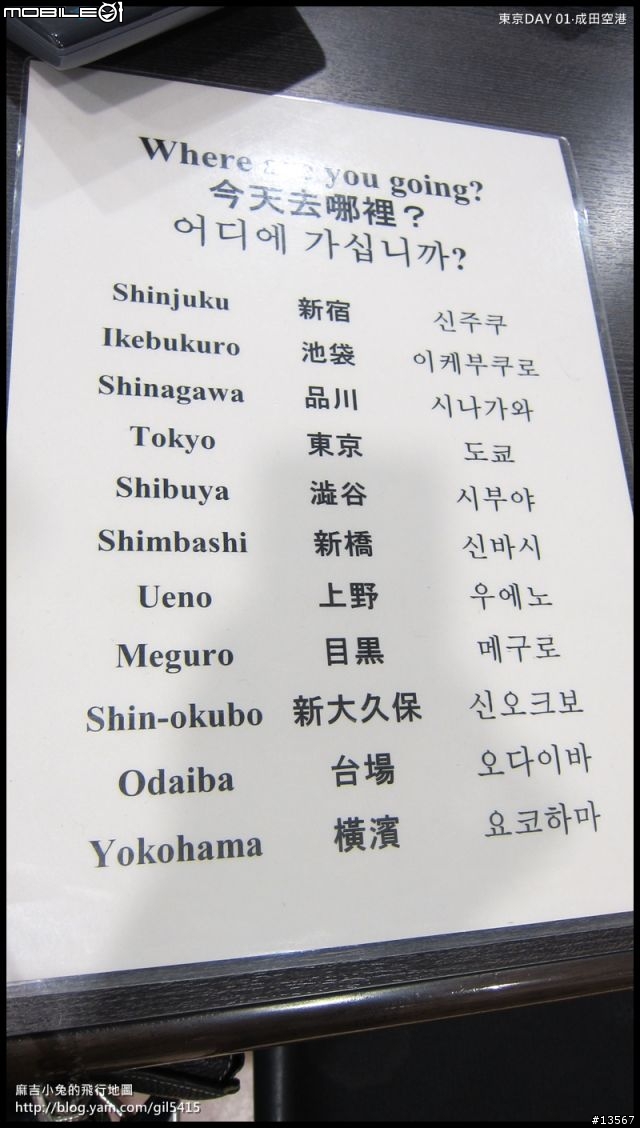 MOBILE01
東京DAY 01‧成田空港
Where are you going?
今天去哪裡？
어디에 가십니까?
Shinjuku 新宿 신주쿠
Ikebukuro 池袋 이케부쿠로
Shinagawa 品川 시나가와
Tokyo 東京 도쿄
Shibuya 澁谷 시부야
Shimbashi 新橋 신바시
Ueno 上野 우에노
Meguro 目黒 메구로
Shin-okubo 新大久保 신오크보
Odaiba 台場 오다이바
Yokohama 橫濱 요코하마
麻吉小兔的飛行地圖
http://blog.yam.com/gil5415
#13567